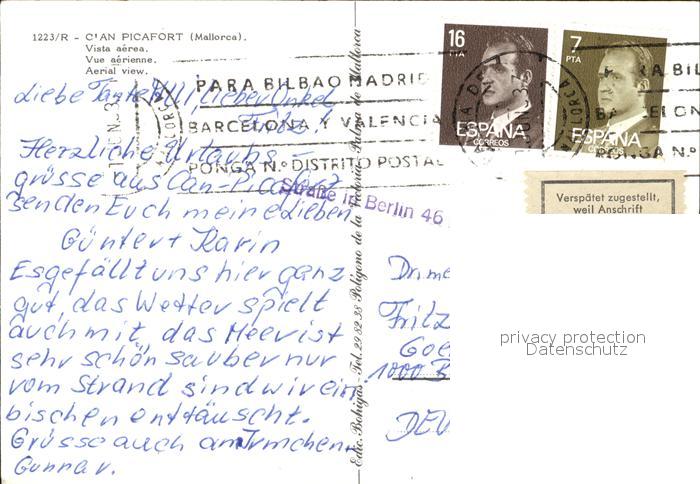 1223/R - C'AN PICAFORT (Mallorca).
Vista aérea.
Vue aérienne.
Aerial view.
PARA BILBAO MADRID
BARCELONA Y VALENCIA
PONGA N.º DISTRITO POSTAL
Liebe Tante Lilli, lieber Onkel
Fritz!
Herzliche Urlaubs-
grüsse aus Can-Picafort
senden Euch meine Lieben
Günter + Karin
Es gefällt uns hier ganz
gut, das Wetter spielt
auch mit, das Meer ist
sehr schön sauber nur
vom Strand sind wir ein
bischen enttäuscht.
Grüsse auch an Irmchen
Gunnar.
Edic. Bohigas - Tel. 29 82 38 Polígono de la Victoria - Palma de Mallorca
16
PTA
ESPAÑA
CORREOS
7
PTA
ESPAÑA
CORREOS
PARA BIL
BARCELON
PONGA N.º
Straße in Berlin 46
Verspätet zugestellt,
weil Anschrift
Fritz
Goe
1000 B
privacy protection
Datenschutz